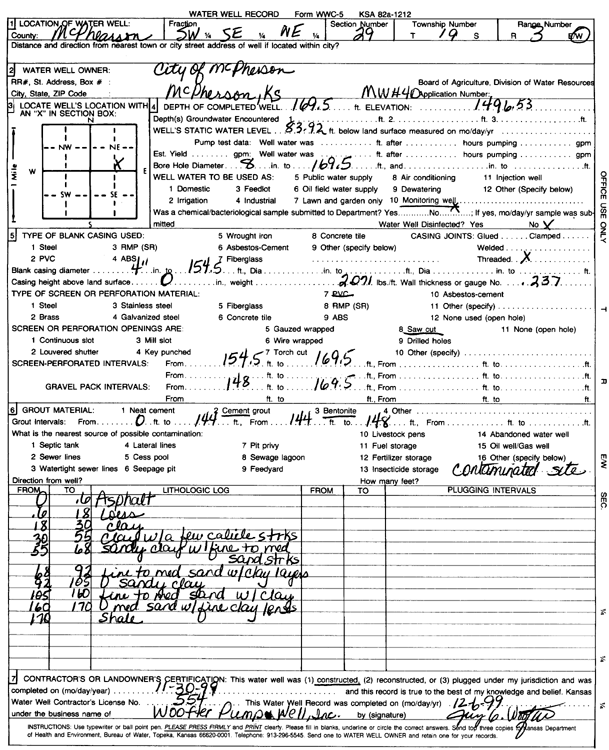 WATER WELL RECORD Form WWC-5 KSA 82a-1212
1 LOCATION OF WATER WELL: Fraction Section Number Township Number Range Number
County: McPherson SW ¼ SE ¼ NE ¼ 29 T 19 S R 3 E/W
Distance and direction from nearest town or city street address of well if located within city?
2 WATER WELL OWNER: City of McPherson
RR#, St. Address, Box # : Board of Agriculture, Division of Water Resources
City, State, ZIP Code : McPherson, Ks MW#40 Application Number:
3 LOCATE WELL'S LOCATION WITH AN "X" IN SECTION BOX:
N
NW NE
X
W E
SW SE
S
1 Mile
4 DEPTH OF COMPLETED WELL 169.5 ft. ELEVATION: 1496.53
Depth(s) Groundwater Encountered 1. ft. 2. ft. 3. ft.
WELL'S STATIC WATER LEVEL 83.92 ft. below land surface measured on mo/day/yr
Pump test data: Well water was ft. after hours pumping gpm
Est. Yield gpm: Well water was ft. after hours pumping gpm
Bore Hole Diameter 8 in. to 169.5 ft., and in. to ft.
WELL WATER TO BE USED AS: 5 Public water supply 8 Air conditioning 11 Injection well
1 Domestic 3 Feedlot 6 Oil field water supply 9 Dewatering 12 Other (Specify below)
2 Irrigation 4 Industrial 7 Lawn and garden only 10 Monitoring well X
Was a chemical/bacteriological sample submitted to Department? Yes No X; If yes, mo/day/yr sample was submitted
Water Well Disinfected? Yes No X
5 TYPE OF BLANK CASING USED: 5 Wrought iron 8 Concrete tile CASING JOINTS: Glued Clamped
1 Steel 3 RMP (SR) 6 Asbestos-Cement 9 Other (specify below) Welded
2 PVC 4 ABS 7 Fiberglass Threaded X
Blank casing diameter 4" in. to 154.5 ft., Dia in. to ft., Dia in. to ft.
Casing height above land surface 0 in., weight 2.071 lbs./ft. Wall thickness or gauge No. .237
TYPE OF SCREEN OR PERFORATION MATERIAL: 7 PVC 10 Asbestos-cement
1 Steel 3 Stainless steel 5 Fiberglass 8 RMP (SR) 11 Other (specify)
2 Brass 4 Galvanized steel 6 Concrete tile 9 ABS 12 None used (open hole)
SCREEN OR PERFORATION OPENINGS ARE: 5 Gauzed wrapped 8 Saw cut 11 None (open hole)
1 Continuous slot 3 Mill slot 6 Wire wrapped 9 Drilled holes
2 Louvered shutter 4 Key punched 7 Torch cut 10 Other (specify)
SCREEN-PERFORATED INTERVALS: From 154.5 ft. to 169.5 ft., From ft. to ft.
From ft. to ft., From ft. to ft.
GRAVEL PACK INTERVALS: From 148 ft. to 169.5 ft., From ft. to ft.
From ft. to ft., From ft. to ft.
6 GROUT MATERIAL: 1 Neat cement 2 Cement grout 3 Bentonite 4 Other
Grout Intervals: From 0 ft. to 144 ft., From 144 ft. to 148 ft., From ft. to ft.
What is the nearest source of possible contamination: 10 Livestock pens 14 Abandoned water well
1 Septic tank 4 Lateral lines 7 Pit privy 11 Fuel storage 15 Oil well/Gas well
2 Sewer lines 5 Cess pool 8 Sewage lagoon 12 Fertilizer storage 16 Other (specify below)
3 Watertight sewer lines 6 Seepage pit 9 Feedyard 13 Insecticide storage contaminated site
Direction from well? How many feet?
FROM TO LITHOLOGIC LOG FROM TO PLUGGING INTERVALS
0 .6 Asphalt
.6 18 Loess
18 30 clay
30 55 clay w/a few caliche strks
55 68 sandy clay w/fine to med
sand strks
68 92 fine to med sand w/clay layers
92 105 sandy clay
105 160 fine to med sand w/ clay
160 170 med sand w/fine clay lenses
170 Shale
7 CONTRACTOR'S OR LANDOWNER'S CERTIFICATION: This water well was (1) constructed, (2) reconstructed, or (3) plugged under my jurisdiction and was
completed on (mo/day/year) 11-30-99 and this record is true to the best of my knowledge and belief. Kansas
Water Well Contractor's License No. 554 This Water Well Record was completed on (mo/day/yr) 12-6-99
under the business name of Woofter Pump & Well, Inc. by (signature)
INSTRUCTIONS: Use typewriter or ball point pen. PLEASE PRESS FIRMLY and PRINT clearly. Please fill in blanks, underline or circle the correct answers. Send top three copies to Kansas Department
of Health and Environment, Bureau of Water, Topeka, Kansas 66620-0001. Telephone: 913-296-5545. Send one to WATER WELL OWNER and retain one for your records.
OFFICE USE ONLY
T
R
E/W
SEC.
¼
¼
¼